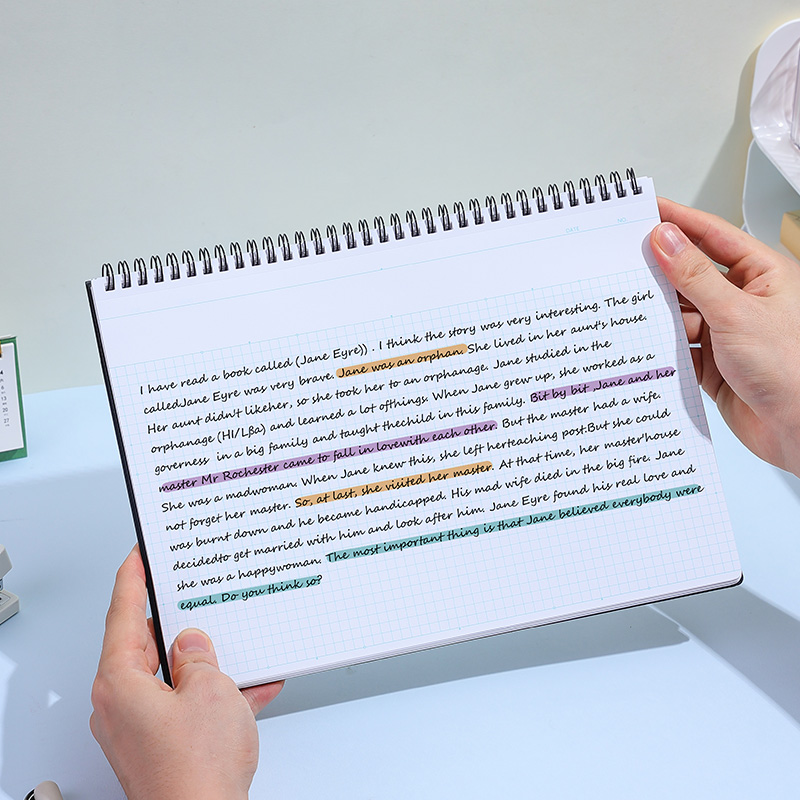 DATE
NO.
I have read a book called (Jane Eyre)) . I think the story was very interesting. The girl
calledJane Eyre was very brave. Jane was an orphan. She lived in her aunt's house.
Her aunt didn't likeher, so she took her to an orphanage. Jane studied in the
orphanage (HI/Lβa) and learned a lot ofthings. When Jane grew up, she worked as a
governess in a big family and taught thechild in this family. Bit by bit ,Jane and her
master Mr Rochester came to fall in lovewith each other. But the master had a wife.
She was a madwoman. When Jane knew this, she left herteaching post.But she could
not forget her master. So, at last, she visited her master. At that time, her master'house
was burnt down and he became handicapped. His mad wife died in the big fire. Jane
decidedto get married with him and look after him. Jane Eyre found his real love and
she was a happywoman. The most important thing is that Jane believed everybody were
equal. Do you think so?